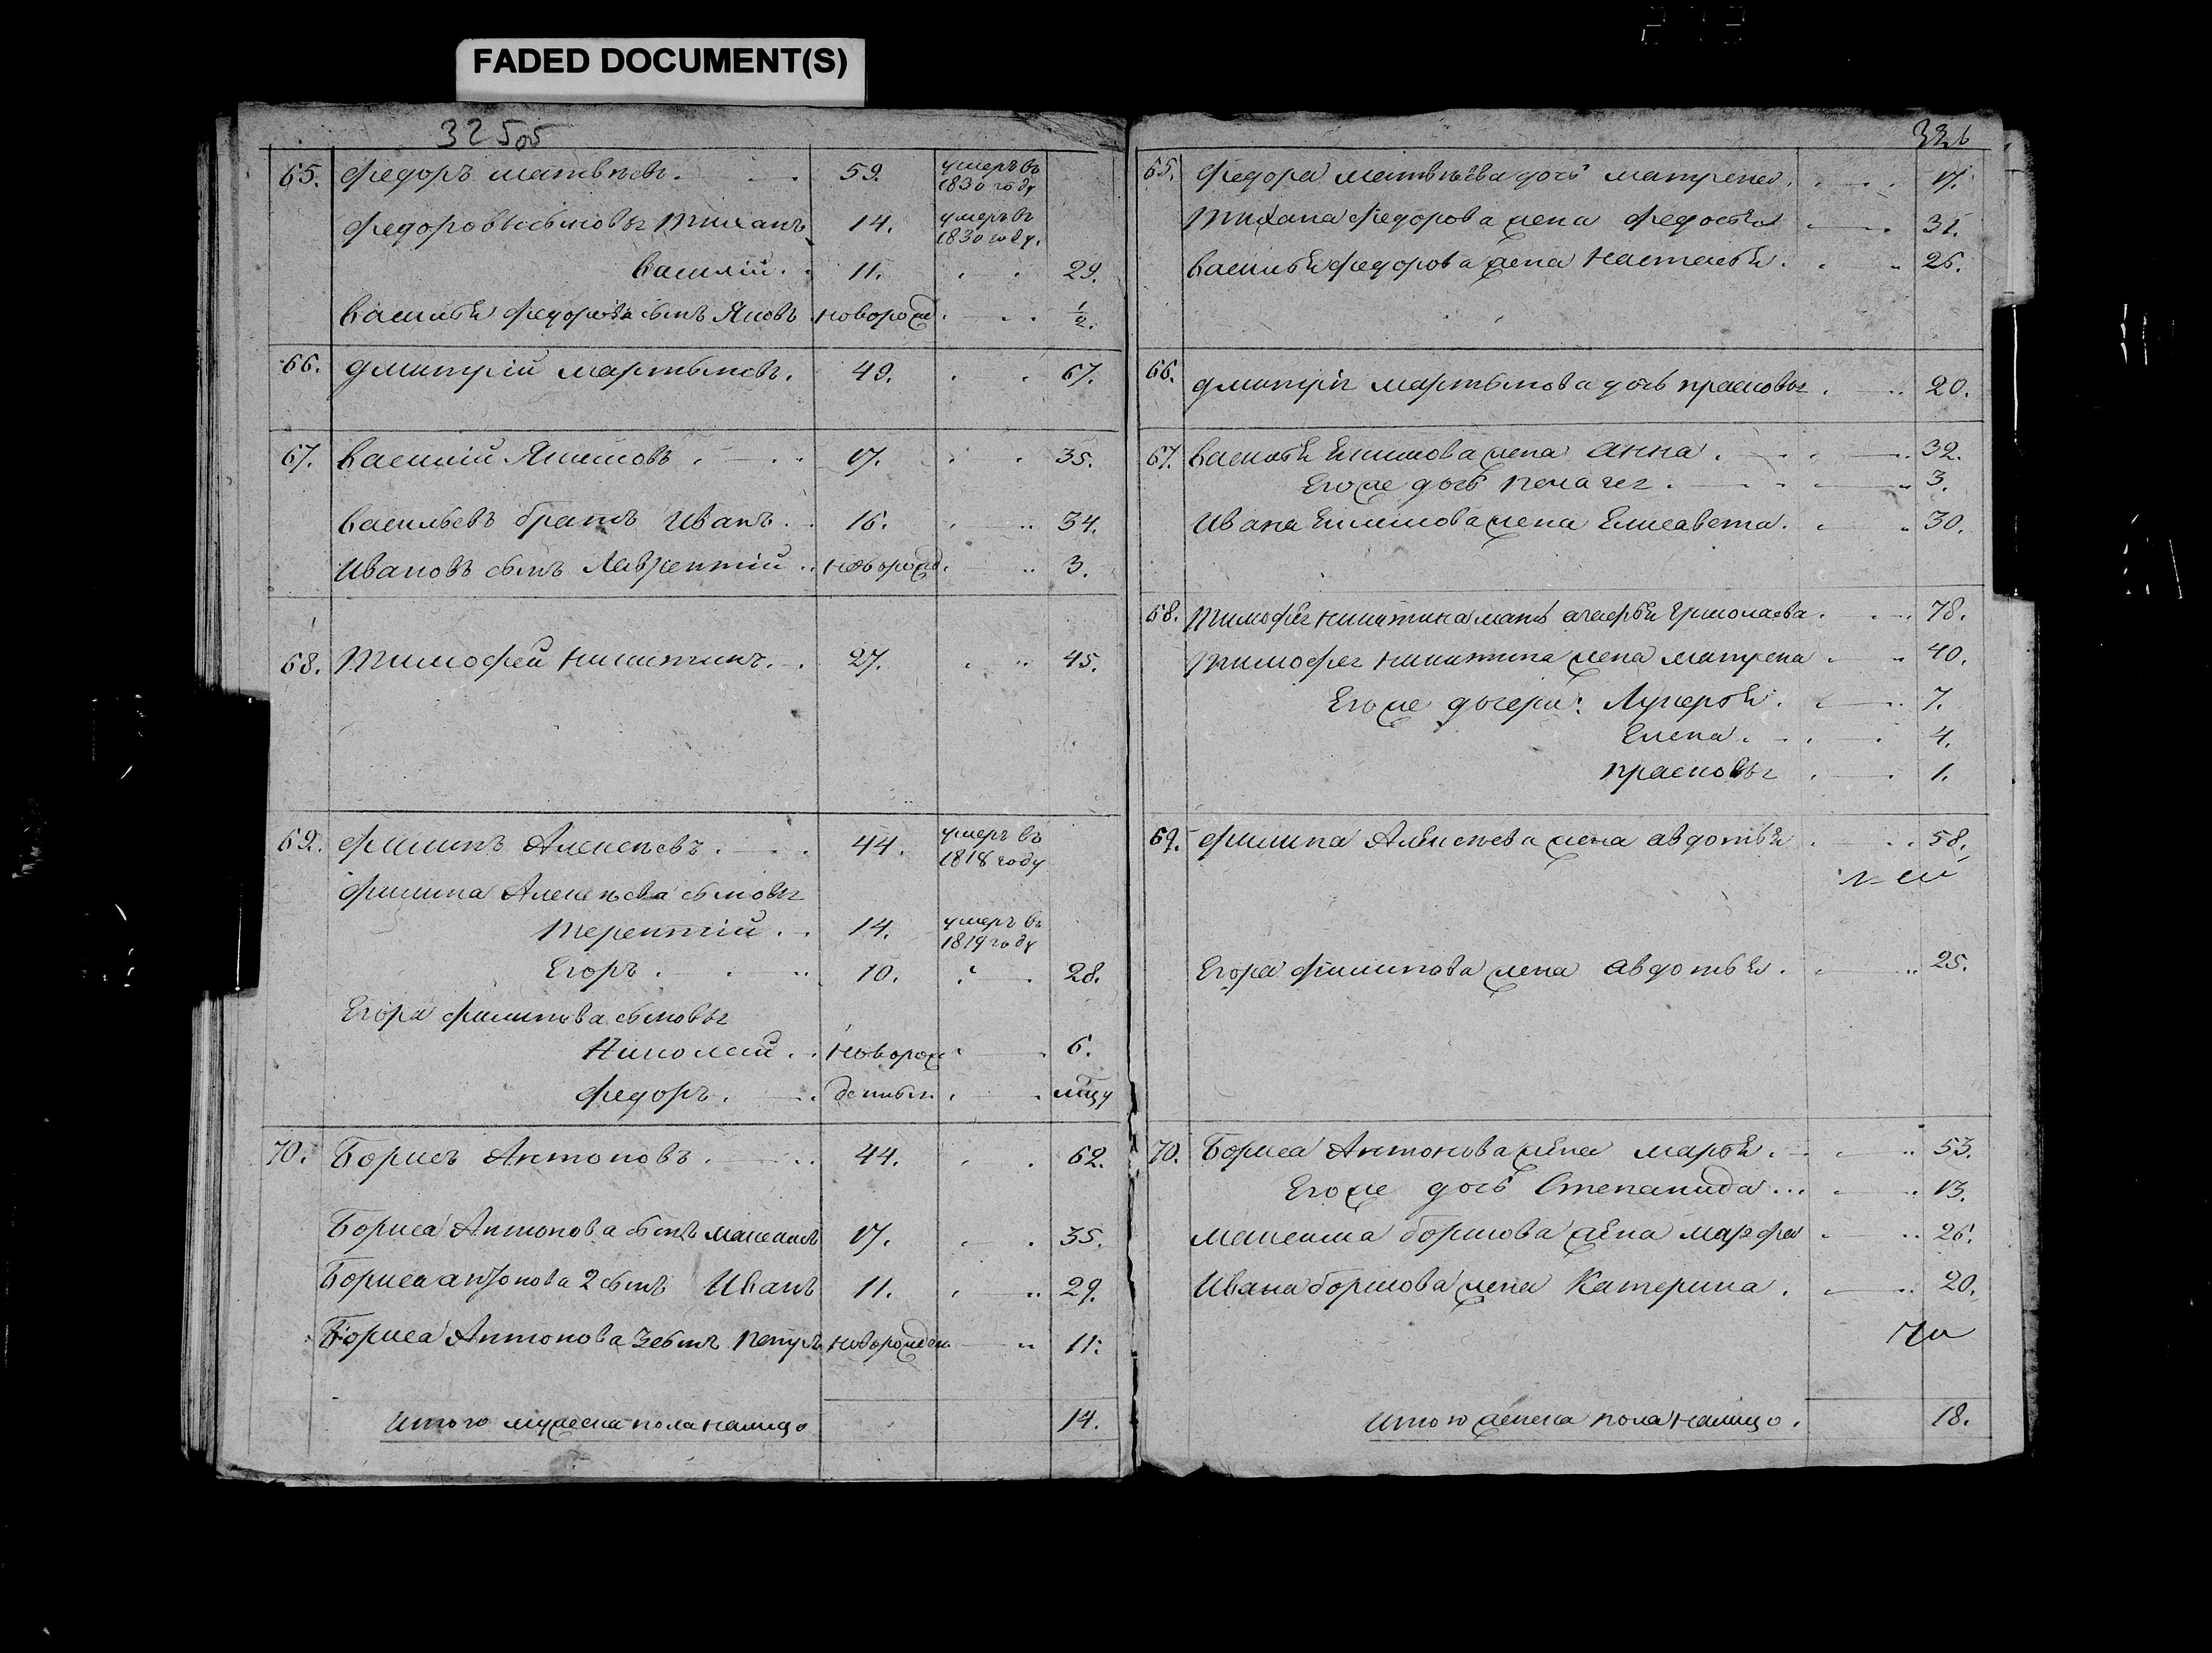 FADED DOCUMENT(S)
65. Федоръ Матвѣевъ. 59. умеръ въ
1830 году
Федоровы сыновья Тиханъ 14. умеръ въ
1830 году.
Василій. 11. 29.
Василья Федорова сынъ Яковъ новорожд. 1/2.
66. Дмитрій Мартыновъ. 49. 67.
67. Василій Якимовъ 17. 35.
Васильевъ братъ Иванъ. 16. 34.
Ивановъ сынъ Лаврентій новорожд. 3.
68. Тимофей Никитинъ. 27. 45.
69. Филипъ Алексѣевъ. 44. умеръ въ
1818 году
Филипа Алексѣева сыновья
Терентій. 14. умеръ въ
1819 году
Егоръ. 10. 28.
Егора Филипова сыновья
Николай. новорож 6.
Федоръ. мцу
70. Борисъ Антоновъ. 44. 62.
Бориса Антонова сынъ Максимъ 17. 35.
Бориса Антонова 2 сынъ Иванъ 11. 29.
Бориса Антонова 3 сынъ Петръ новорожден 11.
Итого мужеска пола налицо 14.
65. Федора Матвѣева дочь Матрена. 17.
Тихана Федорова жена Федосья 31.
Василья Федорова жена Настасья. 26.
66. Дмитрія Мартынова дочь Прасковья 20.
67. Василья Екимова жена Анна. 32.
Его же дочь Пелагея. 3.
Ивана Екимова жена Елисавета. 30.
68. Тимофея Никитина мать Ермолаева. 78.
Тимофея Никитина жена Матрена 40.
Его же дочери: Лукерья. 7.
Елена. 4.
Прасковья 1.
69. Филипа Алексѣева жена Авдотья 58.
Егора Филипова жена Авдотья. 25.
70. Бориса Антонова жена Марья. 53.
Его же дочь Степанида... 13.
Максима Борисова жена Марфа 26.
Ивана Борисова жена Катерина. 20.
Итого женска пола налицо. 18.